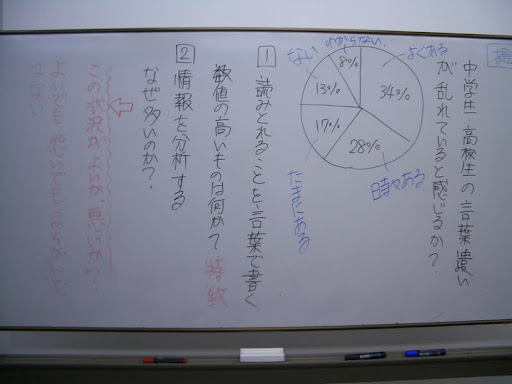 中学生・高校生の言葉遣い
が乱れていると感じるか?
よくある
34%
時々ある
28%
たまにある
17%
ない
13%
わからない
8%
1 読みとれることを言葉で書く
数値の高いものは何か? 特徴
2 情報を分析する
なぜ多いのか?
この状況がよいか、悪いか?